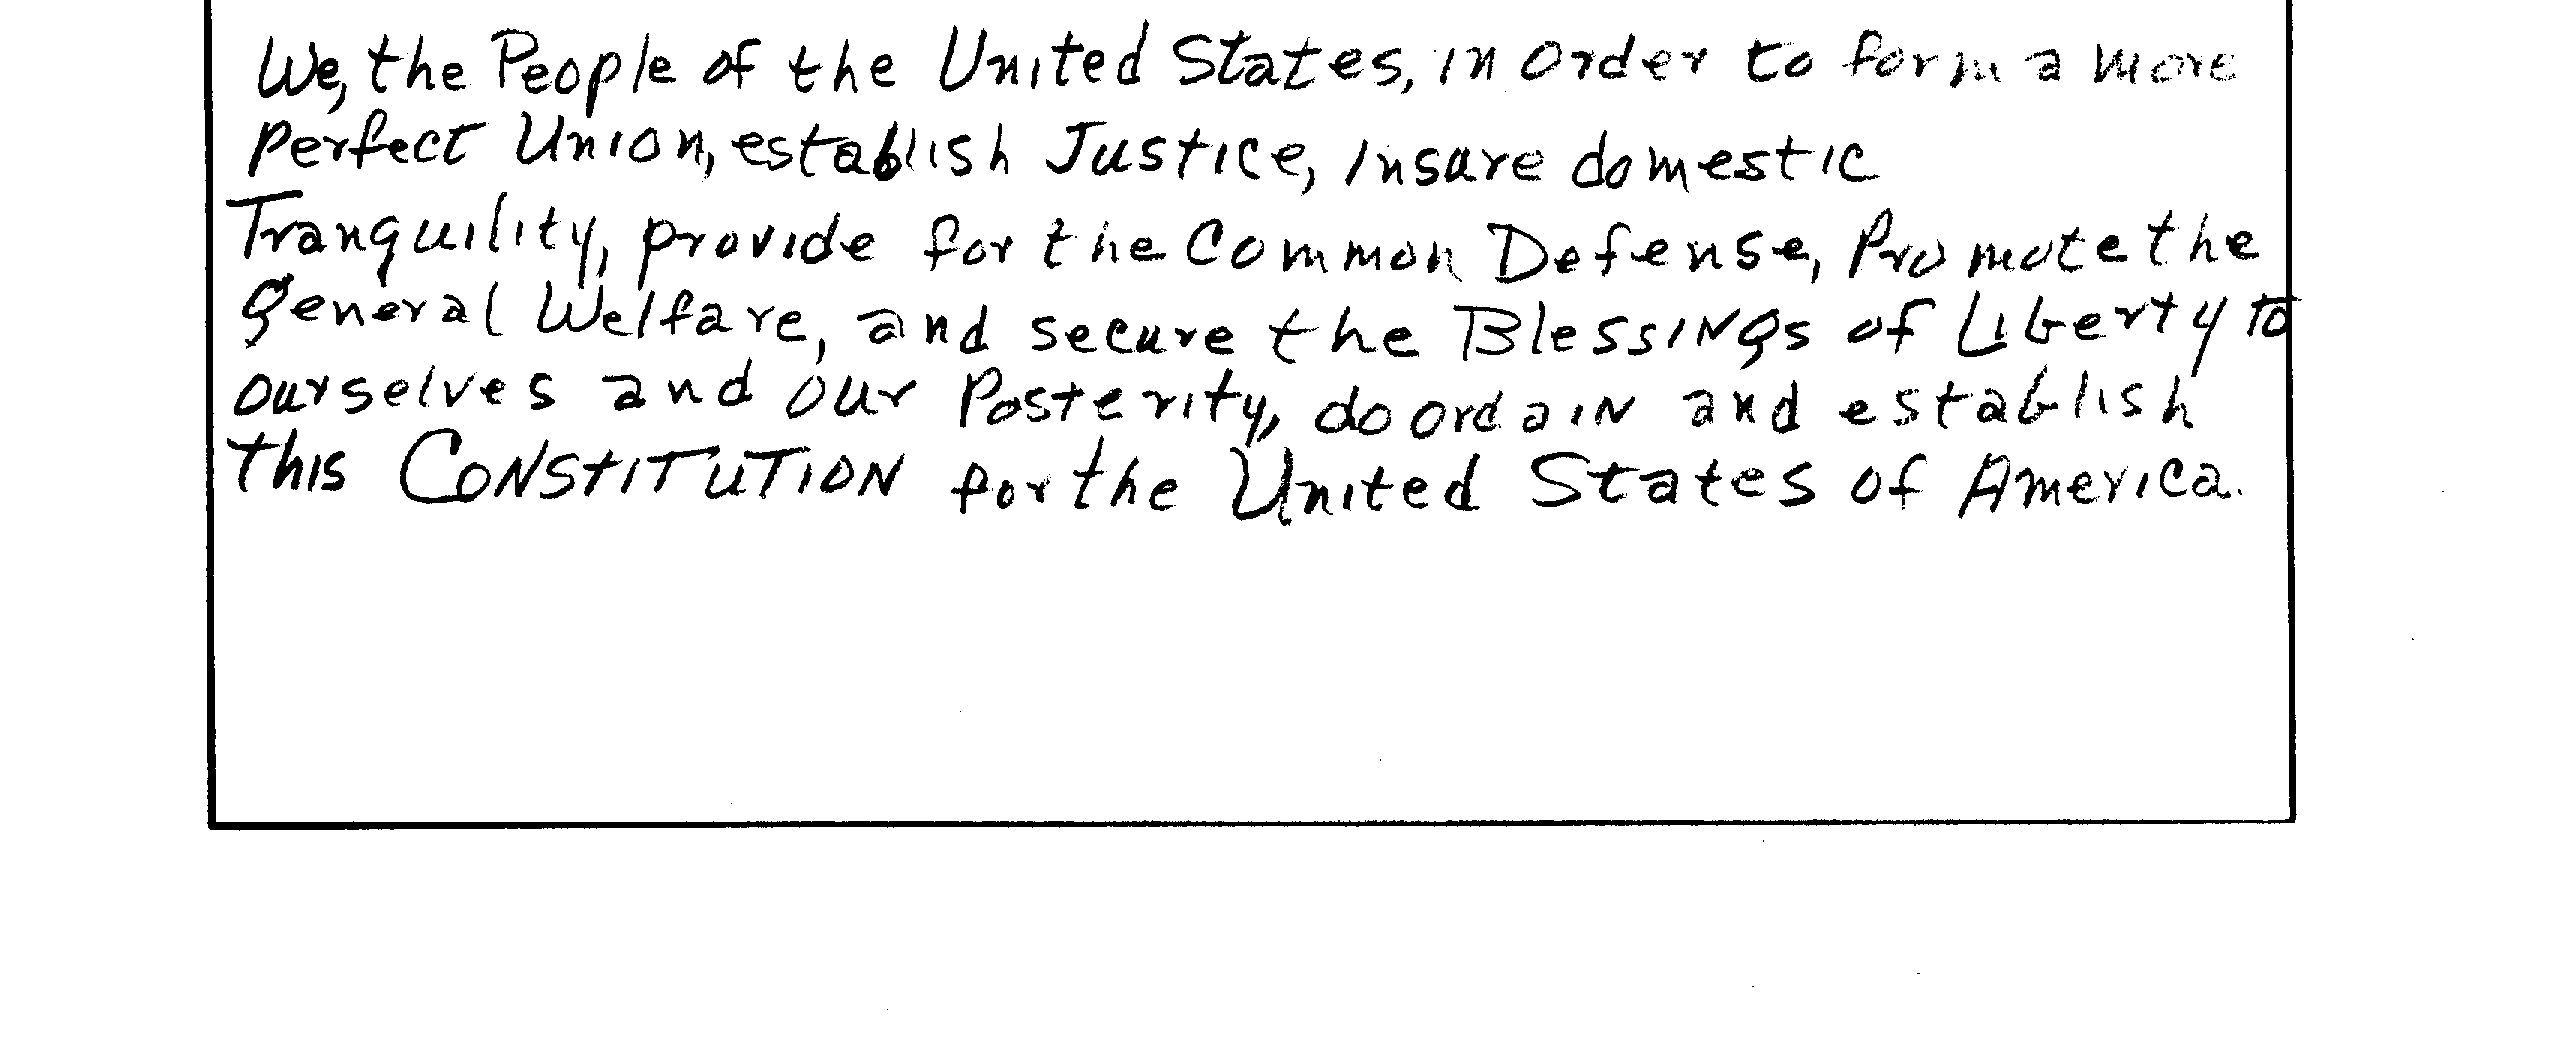 We, the People of the United States, in order to form a more
perfect Union, establish Justice, insure domestic
Tranquility, provide for the Common Defense, Promote the
general Welfare, and secure the Blessings of Liberty to
ourselves and our Posterity, do ordain and establish
this CONSTITUTION for the United States of America.